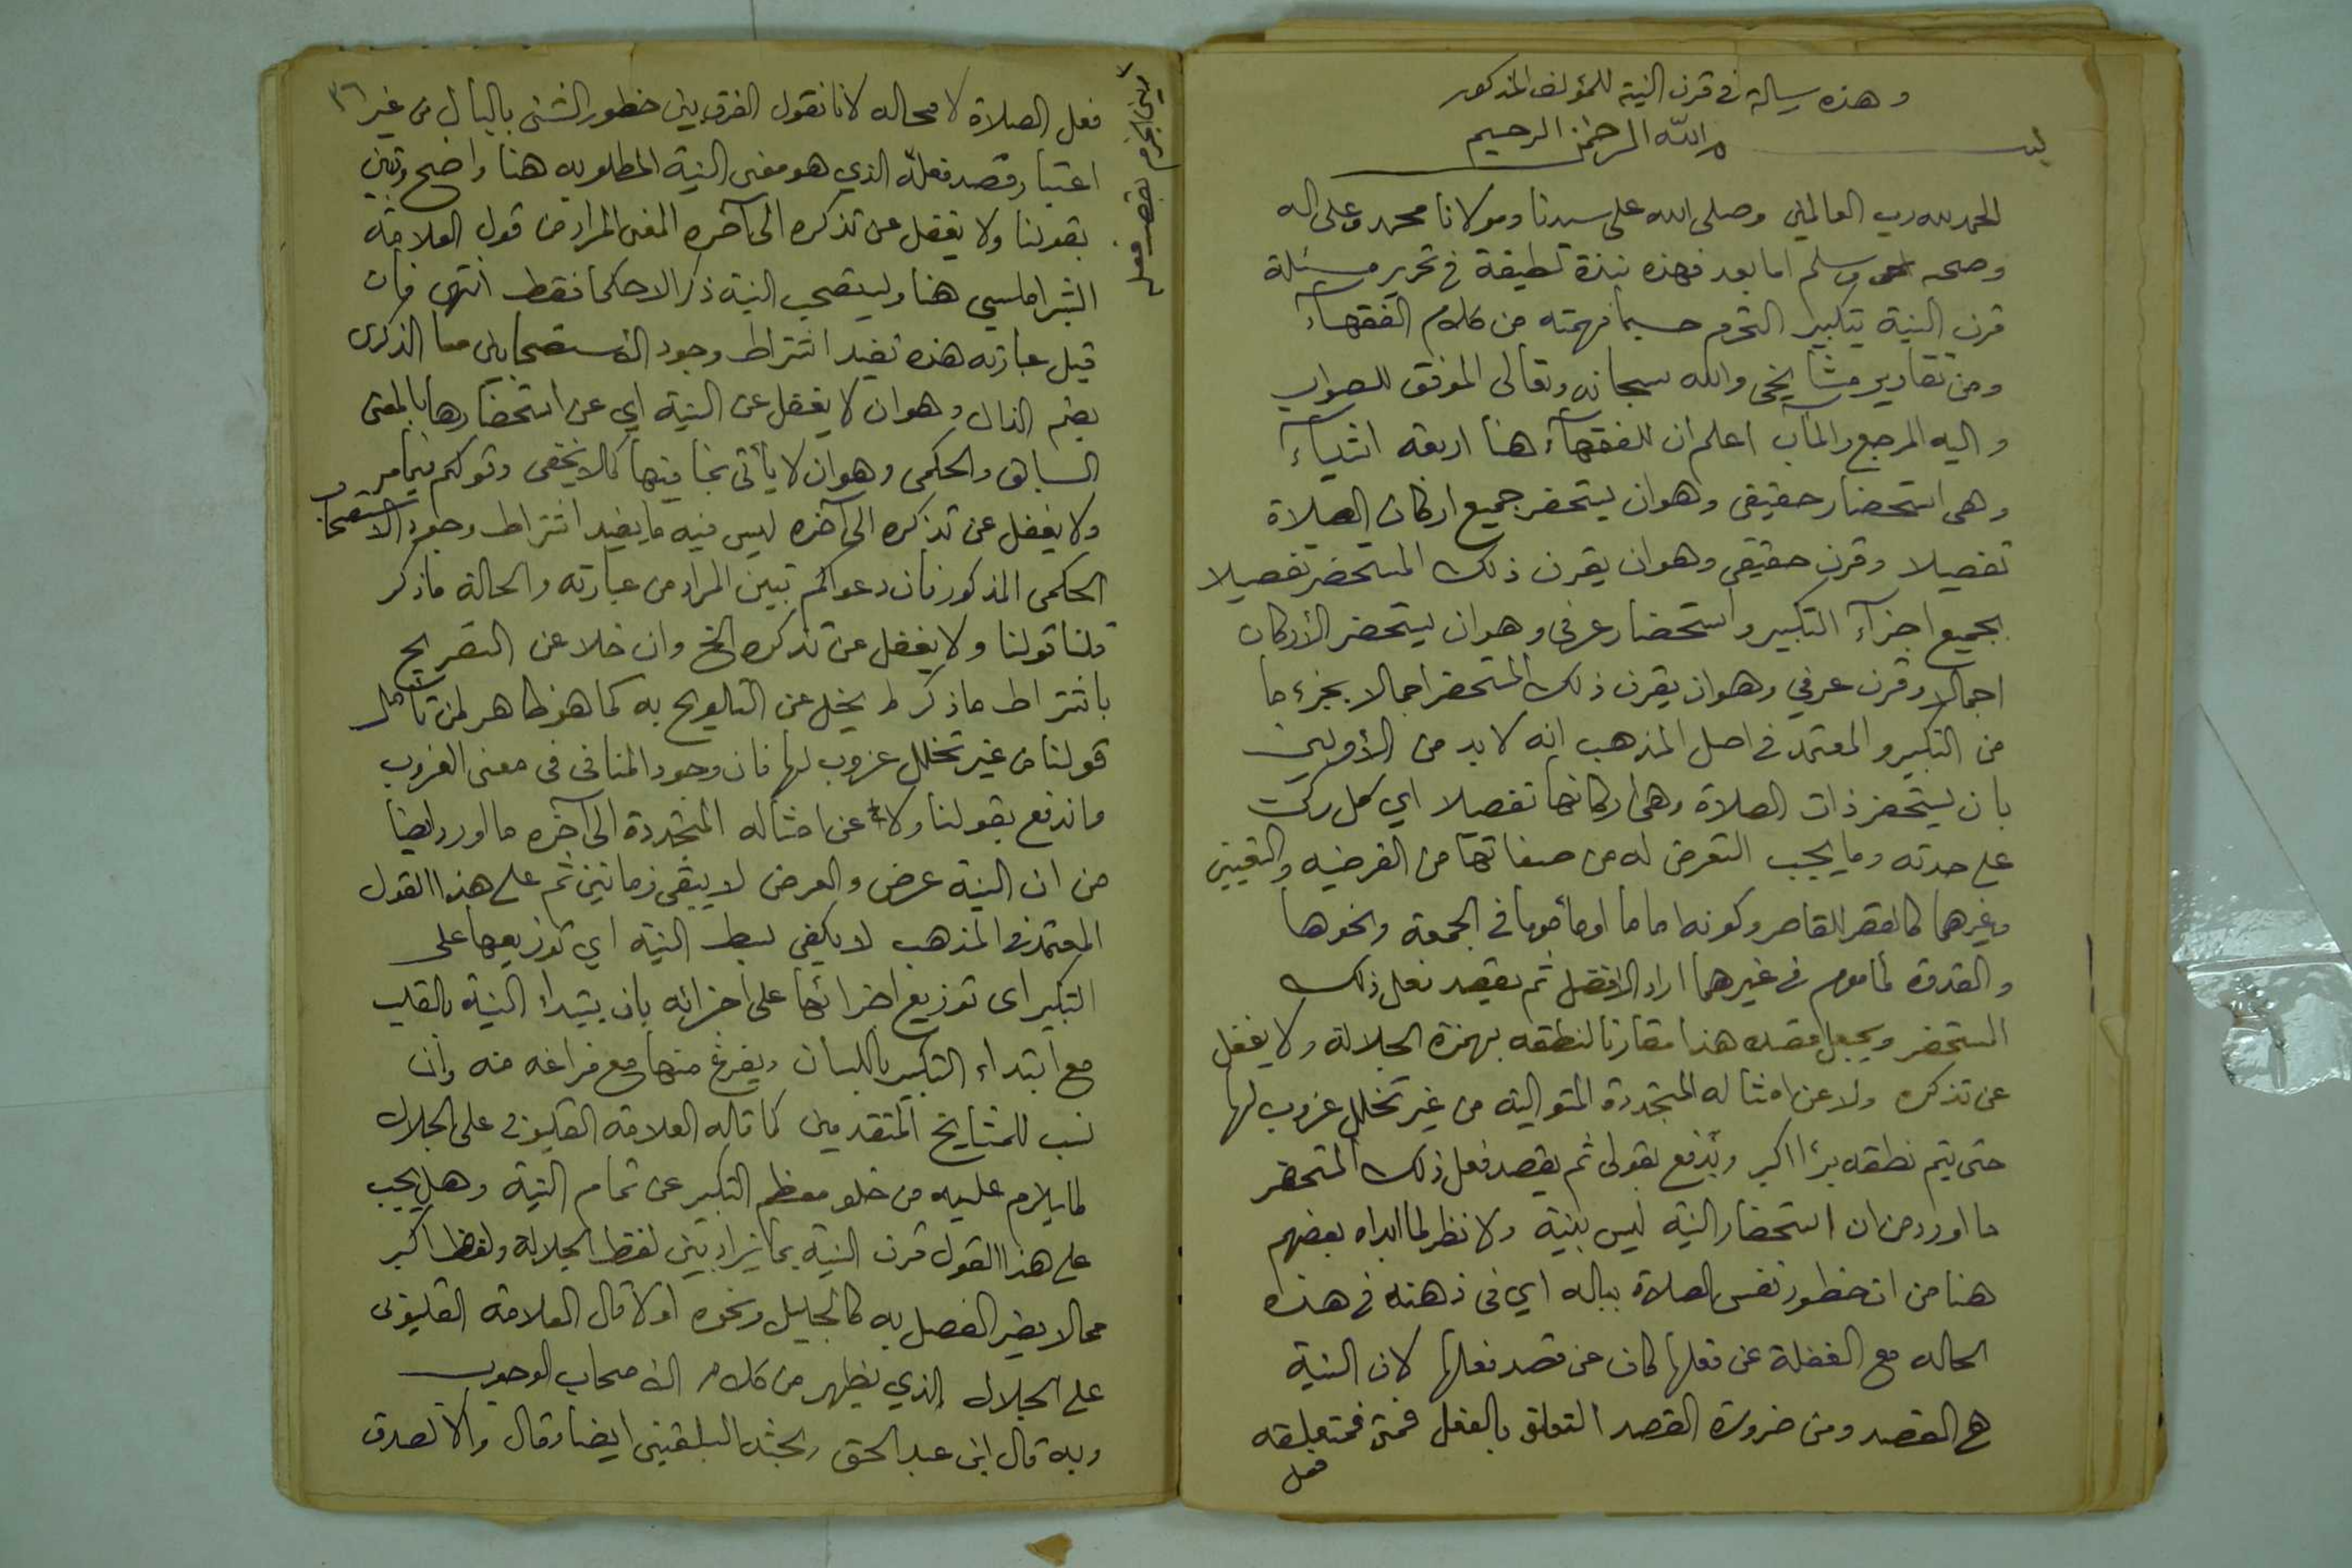 وهذه رسالة في قرن النية للمؤلف المذكور
بسم الله الرحمن الرحيم
الحمد لله رب العالمين وصلى الله على سيدنا ومولانا محمد وعلى اله
وصحبه وسلم اما بعد فهذه نبذة لطيفة في تحرير مسئلة
قرن النية بتكبير التحرم حسبما فهمته من كلام الفقهآء
ومن تقارير مشايخي والله سبحانه وتعالى الموفق للصواب
واليه المرجع والمآب اعلم ان للفقهآء هنا اربعة اشيآء
وهي استحضار حقيقي وهو ان يستحضر جميع اركان الصلاة
تفصيلا وقرن حقيقي وهو ان يقرن ذلك المستحضر تفصيلا
بجميع اجزآء التكبير واستحضار عرفي وهو ان يستحضر الأركان
اجمالا وقرن عرفي وهو ان يقرن ذلك المستحضر اجمالا بجزء ما
من التكبير والمعتمد في اصل المذهب انه لا بد من الأولين
بان يستحضر ذات الصلاة وهي اركانها تفصيلا اي كل ركن
على حدته وما يجب التعرض له من صفاتها من الفرضيه والتعيين
وغيرهما كالقصر للقاصر وكونه اماما او مأموما في الجمعة ونحوها
والقدوة لمأموم في غيرهما اراد الافضل ثم يقصد فعل ذلك
المستحضر ويجعل قصده هذا مقارنا لنطقه بهمزة الجلالة ولا يغفل
عن تذكره ولا عن امثاله المتجددة المتوالية من غير تخلل عزوب لها
حتى يتم نطقه براء اكبر ويندفع بقولي ثم يقصد فعل ذلك المستحضر
ما اورد من ان استحضار النية ليس بنية ولا نظر لما ابداه بعضهم
هنا من ان خطور نفس الصلاة بباله اي في ذهنه في هذه
الحاله مع الغفلة عن فعلها كاف عن قصد فعلها لان النية
هي القصد ومن ضرورة القصد التعلق بالفعل فمتى فمتعلقه
فعل
٣٦
فعل الصلاة لا محاله لانا نقول الفرق بين خطور الشئ بالبال من غير
اعتبار قصد فعله الذي هو معنى النية المطلوبه هنا واضح وتبين
بقولنا ولا يغفل عن تذكره الى آخره المعنى المراد من قول العلامة
الشبراملسي هنا وليستصحب النية ذكرا لا حكما فقط انتهى فان
قيل عبارته هذه تفيد اشتراط وجود الأستصحابين معا الذكرى
بضم الذال وهو ان لا يغفل عن النية اي عن استحضارها بالمعنى
السابق والحكمي وهو ان لا يأتي بمنافيها كما لا يخفى وقولكم فيما مر
ولا يغفل عن تذكره الى آخره ليس فيه ما يفيد اشتراط وجود الاستصحاب
الحكمي المذكور فان دعواكم تبين المراد من عبارته والحالة ما ذكر
قلنا قولنا ولا يغفل عن تذكره الخ وان خلا عن التصريح
باشتراط ما ذكر لم يخل عن التلويح به كما هو ظاهر لمن تأمل
قولنا من غير تخلل عزوب لها فان وجود المنافي في معنى العزوب
واندفع بقولنا ولا عن امثاله المتجددة الى آخره ما اورد ايضا
من ان النية عرض والعرض لا يبقى زمانين ثم على هذا القول
المعتمد في المذهب لا يكفي بسط النية اي توزيعها على
التكبير اى توزيع اجزائها على اجزائه بان يبتداء النية بالقلب
مع ابتداء التكبير باللسان ويفرغ منها مع فراغه منه وان
نسب للمشايخ المتقدمين كما قاله العلامة القليوبي على الجلال
لما يلزم عليه من خلو معظم التكبير عن تمام النية وهل يجب
على هذا القول قرن النية بما يزاد بين لفظ الجلالة ولفظ اكبر
مما لا يضر الفصل به كالجليل ونحوه او لا قال العلامة القليوبى
على الجلال الذي يظهر من كلام الاصحاب الوجوب
وبه قال ابن عبد الحق وبحثه البلقيني ايضا وقال والا لصدق